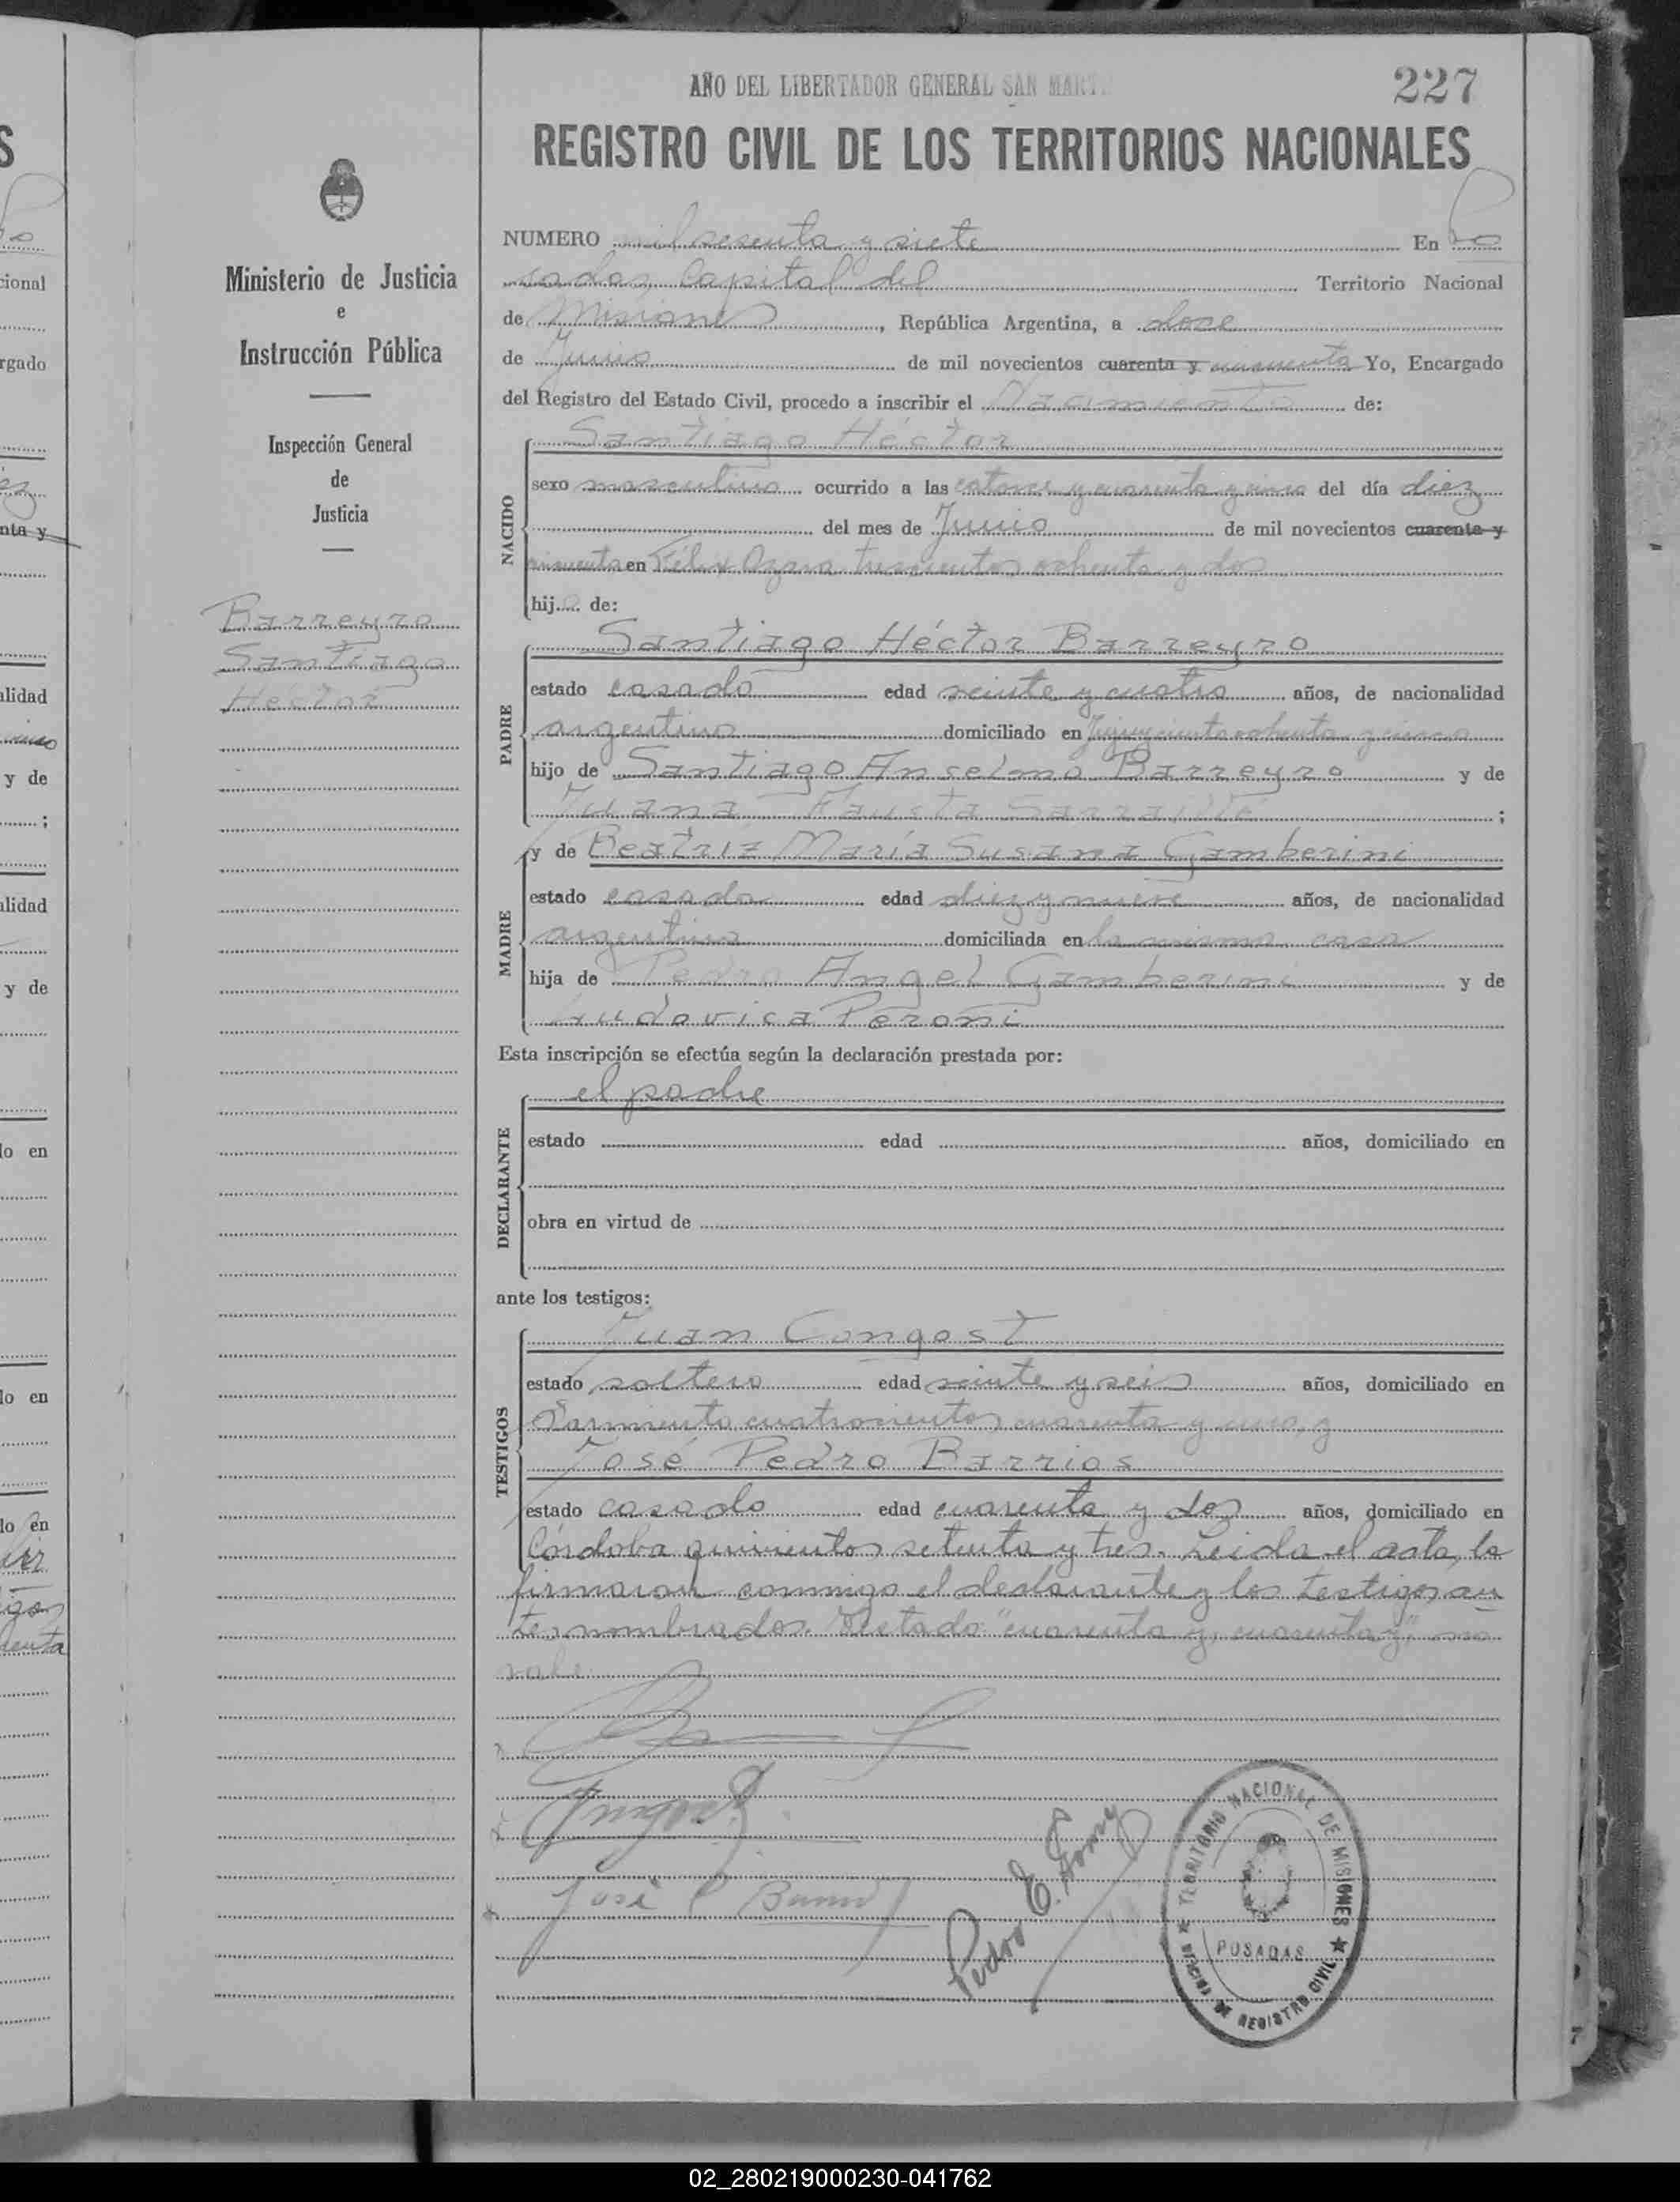 AÑO DEL LIBERTADOR GENERAL SAN MARTI
227
REGISTRO CIVIL DE LOS TERRITORIOS NACIONALES
Ministerio de Justicia
e
Instrucción Pública
Inspección General
de
Justicia
Barreyro
Santiago
Héctor
NUMERO mil sesenta y siete En Po
sadas, Capital del Territorio Nacional
de Misiones, República Argentina, a doce
de Junio de mil novecientos cuarenta y cincuenta Yo, Encargado
del Registro del Estado Civil, procedo a inscribir el Nacimiento de:
NACIDO
Santiago Héctor
sexo masculino ocurrido a las catorce y cuarenta y cinco del día diez
del mes de Junio de mil novecientos cuarenta y
cincuenta en Félix Azara trescientos ochenta y dos
hijo de:
PADRE
Santiago Héctor Barreyro
estado casado edad veinte y cuatro años, de nacionalidad
argentino domiciliado en Jujuy ciento ochenta y cinco
hijo de Santiago Anselmo Barreyro y de
Juana Fausta ;
MADRE
y de Beatriz María Susana Gamberini
estado casada edad diez y nueve años, de nacionalidad
argentina domiciliada en la misma casa
hija de Pedro Angel Gamberini y de
Ludovica Peroni
Esta inscripción se efectúa según la declaración prestada por:
DECLARANTE
el padre
estado edad años, domiciliado en
obra en virtud de
ante los testigos:
TESTIGOS
Juan Congost
estado soltero edad veinte y seis años, domiciliado en
Sarmiento cuatrocientos cuarenta y uno, y
José Pedro Barrios
estado casado edad cuarenta y dos años, domiciliado en
Córdoba quinientos setenta y tres. Leida el acta, la
firmaron conmigo el declarante y los testigos an
tes nombrados. Testado: "cuarenta y, cuarenta y", no
vale.
José P Barrios
Pedro E. Gomy
TERRITORIO NACIONAL DE MISIONES
POSADAS
OFICINA DE REGISTRO CIVIL
02_280219000230-041762